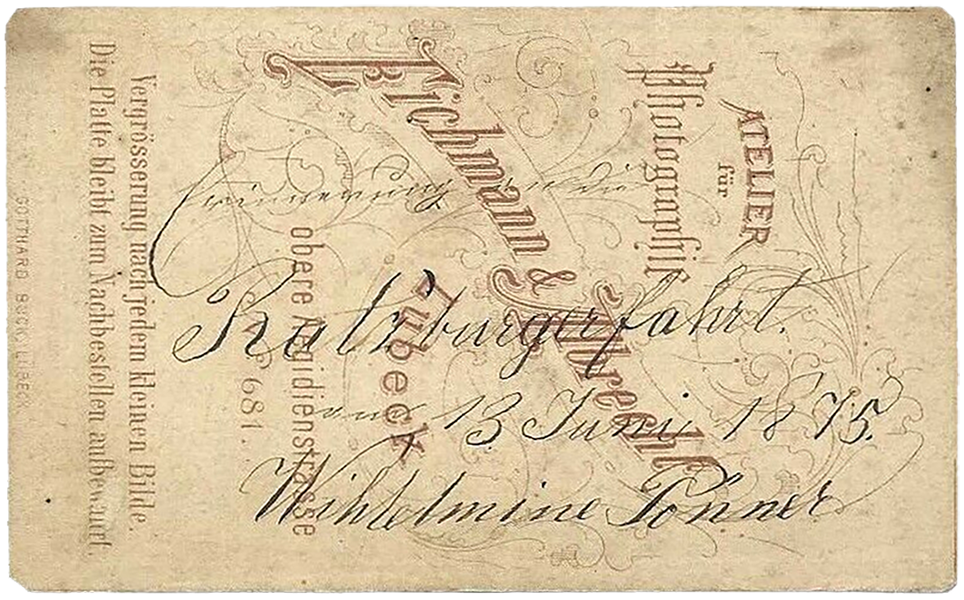 Erinnerung an die
Ratzburgerfahrt.
am 13 Juni 1875.
Wihlelmine
ATELIER
für
Photographie
Eichmann & Albrecht
Lübeck
obere Aegidienstrasse
№ 681.
Vergrösserung nach jedem kleinen Bilde.
Die Platte bleibt zum Nachbestellen aufbewahrt.
GOTTHARD BUCK, LÜBECK